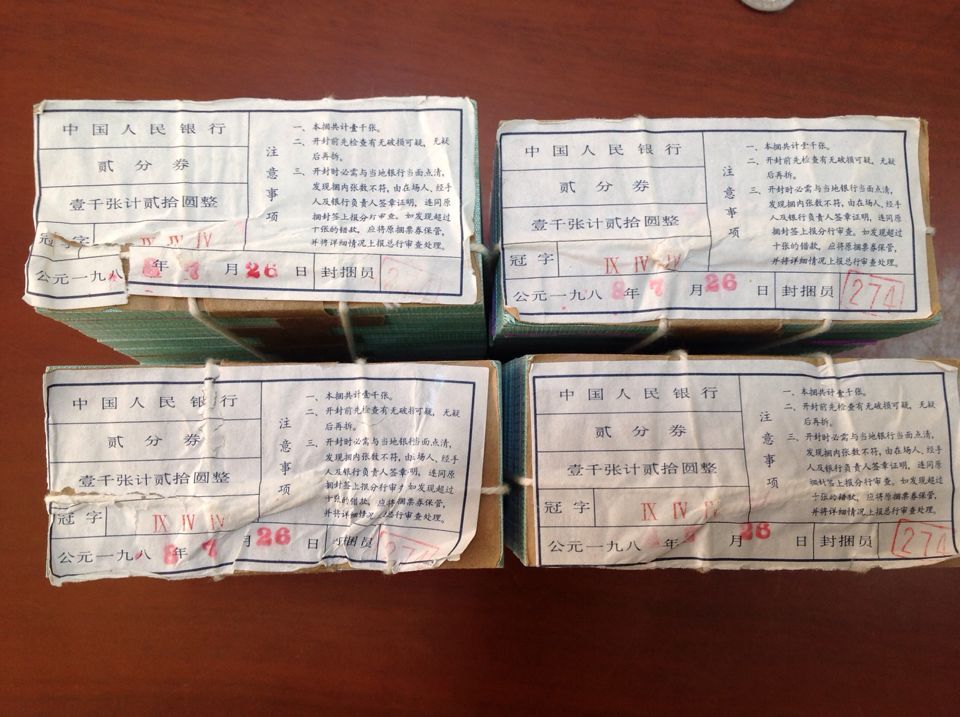 中国人民银行
贰分券
壹千张计贰拾圆整
冠字 IV IV
公元一九八 8年7月26日 封捆员
注意事项
一、本捆共计壹千张。
二、开封前先检查有无破损可疑，无疑
后再拆。
三、开封时必需与当地银行当面点清，
发现捆内张数不符，由在场人、经手
人及银行负责人签章证明，连同原
捆封签上报分行审查。如发现超过
十张的错款，应将原捆票券保管，
并将详细情况上报总行审查处理。
中国人民银行
贰分券
壹千张计贰拾圆整
冠字 IX IV IV
公元一九八8年7月26日 封捆员 274
注意事项
一、本捆共计壹千张。
二、开封前先检查有无破损可疑，无疑
后再拆。
三、开封时必需与当地银行当面点清，
发现捆内张数不符，由在场人、经手
人及银行负责人签章证明，连同原
捆封签上报分行审查。如发现超过
十张的错款，应将原捆票券保管，
并将详细情况上报总行审查处理。
中国人民银行
贰分券
壹千张计贰拾圆整
冠字 IX IV IV
公元一九八8年7月26日 封捆员 274
注意事项
一、本捆共计壹千张。
二、开封前先检查有无破损可疑，无疑
后再拆。
三、开封时必需与当地银行当面点清，
发现捆内张数不符，由在场人、经手
人及银行负责人签章证明，连同原
捆封签上报分行审查。如发现超过
十张的错款，应将原捆票券保管，
并将详细情况上报总行审查处理。
中国人民银行
贰分券
壹千张计贰拾圆整
冠字 IX IV IV
公元一九八 年 月26日 封捆员 274
注意事项
一、本捆共计壹千张。
二、开封前先检查有无破损可疑，无疑
后再拆。
三、开封时必需与当地银行当面点清，
发现捆内张数不符，由在场人、经手
人及银行负责人签章证明，连同原
捆封签上报分行审查。如发现超过
十张的错款，应将原捆票券保管，
并将详细情况上报总行审查处理。